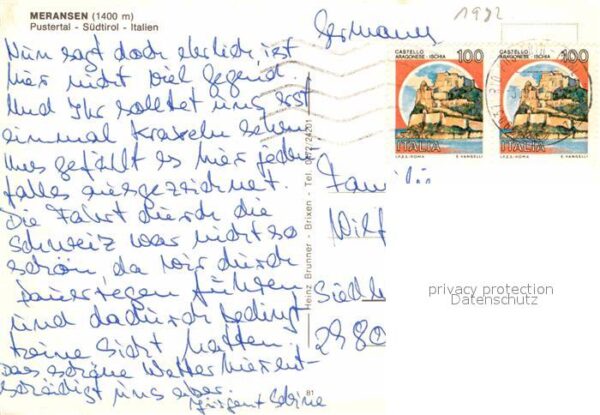 MERANSEN (1400 m)
Pustertal - Südtirol - Italien
Nun sagt doch ehrlich, ist
hier nicht viel Gegend.
Und Ihr solltet uns erst
einmal Kraxeln sehen.
Uns gefällt es hier jeden-
falls ausgezeichnet.
Die Fahrt durch die
Schweiz war nicht so
schön, da wir durch
Dauerregen fuhren
und dadurch bedingt
keine Sicht hatten.
Das schöne Wetter hier ent-
schädigt uns aber.
Jürgen + Sabine
Germany
1982
CASTELLO
ARAGONESE - ISCHIA
100
ITALIA
I.P.Z.S. - ROMA
E. VANGELLI
CASTELLO
ARAGONESE - ISCHIA
100
ITALIA
I.P.Z.S. - ROMA
E. VANGELLI
Heinz Brunner - Brixen - Tel. 0472/24201
81
Fam
Wilf
Siedle
2980
privacy protection
Datenschutz